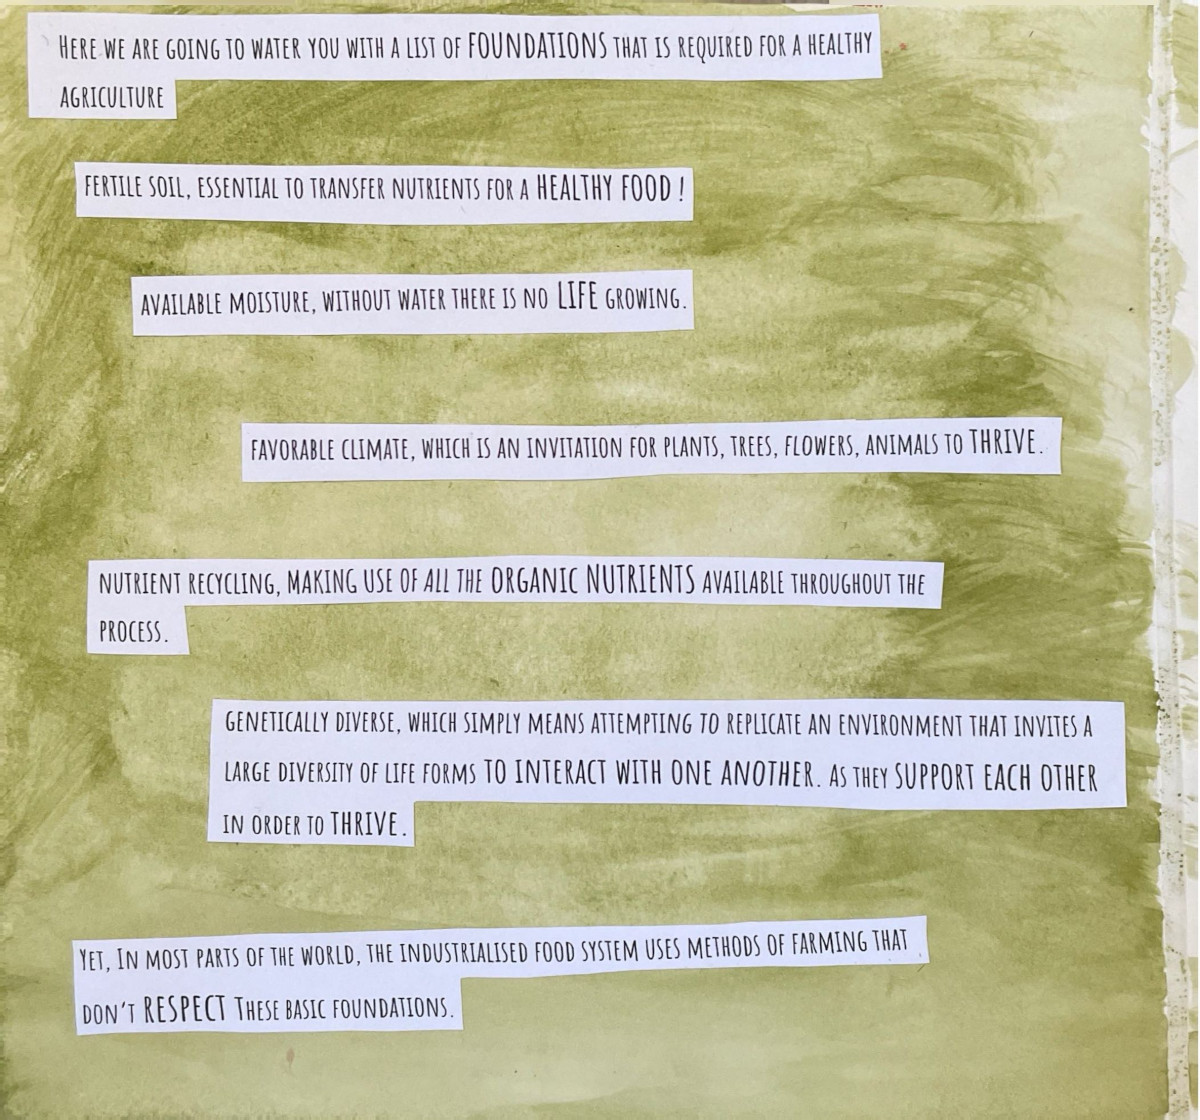 HERE WE ARE GOING TO WATER YOU WITH A LIST OF FOUNDATIONS THAT IS REQUIRED FOR A HEALTHY
AGRICULTURE
FERTILE SOIL, ESSENTIAL TO TRANSFER NUTRIENTS FOR A HEALTHY FOOD !
AVAILABLE MOISTURE, WITHOUT WATER THERE IS NO LIFE GROWING.
FAVORABLE CLIMATE, WHICH IS AN INVITATION FOR PLANTS, TREES, FLOWERS, ANIMALS TO THRIVE.
NUTRIENT RECYCLING, MAKING USE OF ALL THE ORGANIC NUTRIENTS AVAILABLE THROUGHOUT THE
PROCESS.
GENETICALLY DIVERSE, WHICH SIMPLY MEANS ATTEMPTING TO REPLICATE AN ENVIRONMENT THAT INVITES A
LARGE DIVERSITY OF LIFE FORMS TO INTERACT WITH ONE ANOTHER. AS THEY SUPPORT EACH OTHER
IN ORDER TO THRIVE.
YET, IN MOST PARTS OF THE WORLD, THE INDUSTRIALISED FOOD SYSTEM USES METHODS OF FARMING THAT
DON'T RESPECT THESE BASIC FOUNDATIONS.